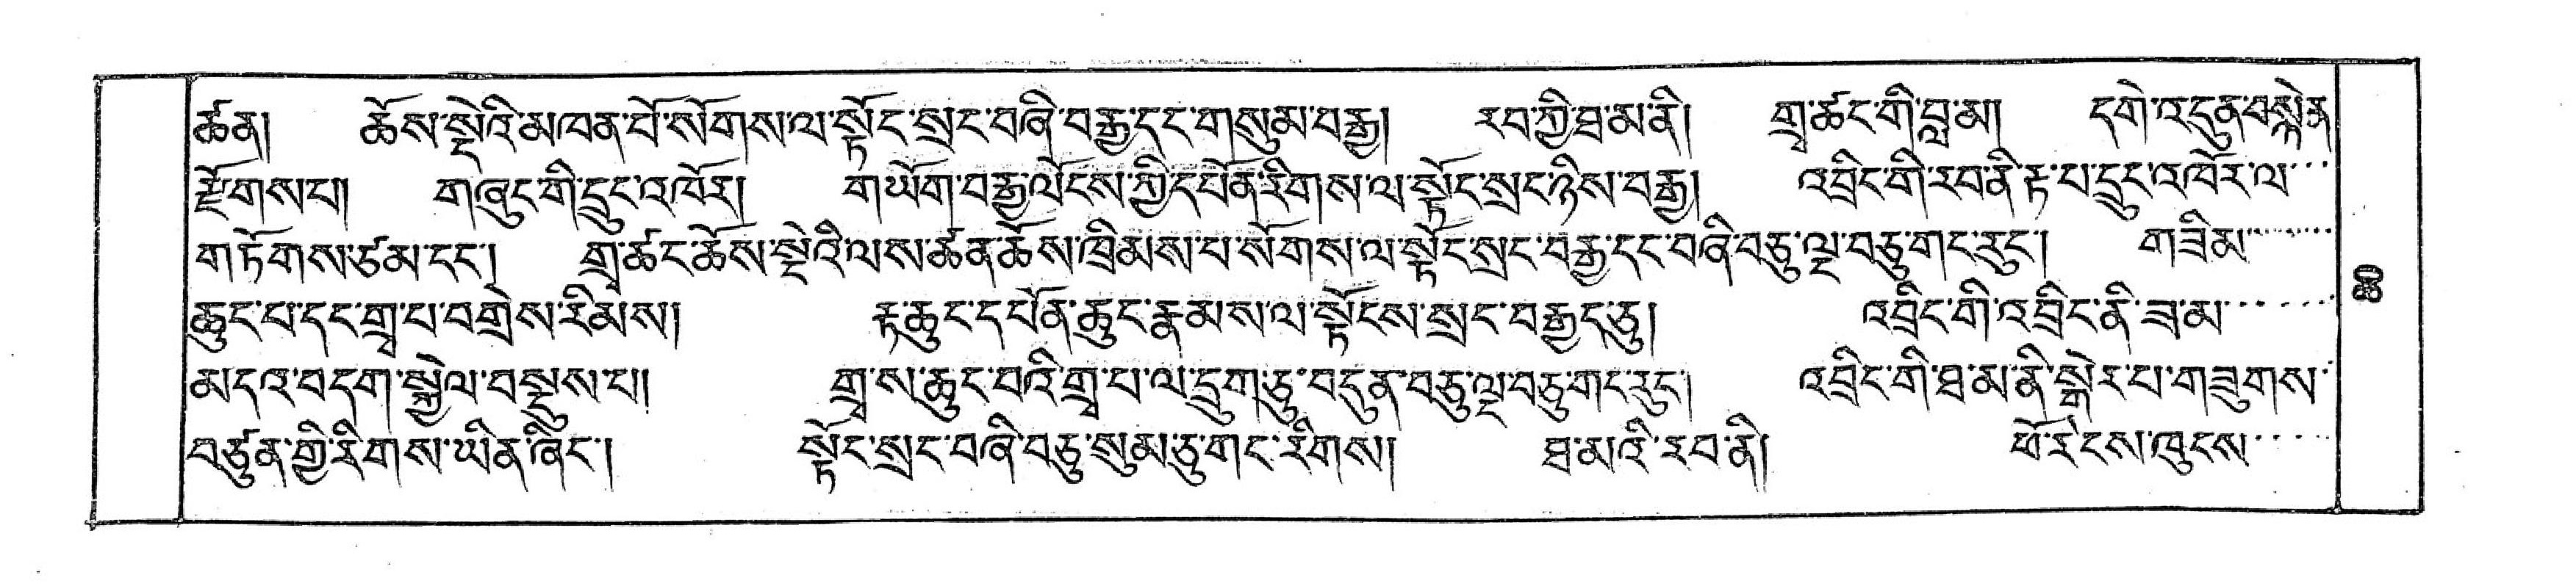 ཚན། ཆོས་སྡེའི་མཁན་པོ་སོགས་ལ་སྟོང་སྲང་བཞི་བརྒྱ་དང་གསུམ་བརྒྱ། རབ་ཀྱི་ཐ་མ་ནི། གྲྭ་ཚང་གི་བླ་མ། དགེ་འདུན་བསྙེན
རྫོགས་པ། གཞུང་གི་དྲུང་འཁོར། གཡོག་བརྒྱ་ལོངས་ཀྱི་དཔོན་རིགས་ལ་སྟོང་སྲང་ཉིས་བརྒྱ། འབྲིང་གི་རབ་ནི་རྟ་པ་དྲུང་འཁོར་ལ་
གཏོགས་ཙམ་དང་། གྲྭ་ཚང་ཆོས་སྡེའི་ལས་ཚན་ཆོས་ཁྲིམས་པ་སོགས་ལ་སྟོང་སྲང་བརྒྱ་དང་བཞི་བཅུ་ལྔ་བཅུ་གང་རུང་། གཟིམ
ཆུང་པ་དང་གྲྭ་པ་བགྲེས་རིམས། རྟ་ཆུང་དཔོན་ཆུང་རྣམས་ལ་སྟོངས་སྲང་བརྒྱད་ཅུ། འབྲིང་གི་འབྲིང་ནི་ཟླ་མ
མདའ་བདག་སྐྱེལ་བསྡུས་པ། གྲྭ་ས་ཆུང་བའི་གྲྭ་པ་ལ་དྲུག་ཅུ་བདུན་བཅུ་ལྔ་བཅུ་གང་རུང་། འབྲིང་གི་ཐ་མ་ནི་སྒེར་པ་གཟུགས་
བཙུན་གྱི་རིགས་ཡིན་ཞིང་། སྟོང་སྲང་བཞི་བཅུ་སུམ་ཅུ་གང་རིགས། ཐ་མའི་རབ་ནི། ཕོ་རངས་ཁུངས